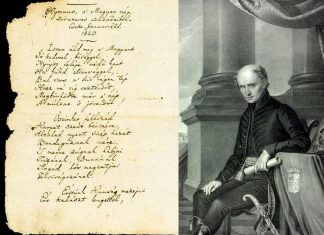 Hymnus, a Magyar nép
zivataros századaiból.
Cseke Januar 22d.
1823
Isten áldd meg a Magyart
Jó kedvvel, bőséggel,
Nyújts feléje védő kart
Ha küzd ellenséggel,
Bal sors a kit régen tép
Hozz rá víg esztendőt
Megbűnhödte már a nép
A multat s jövendőt!
Őseinket felhozád
Kárpát szent bérczére,
Által nyert szép hazát
Bendegúznak vére.
S merre zúgnak habjai
Tiszának, Dunának
Árpád hős magzatjai
Felvirágozának.
Értünk Kunság mezein
Ért kalászt lengettél,